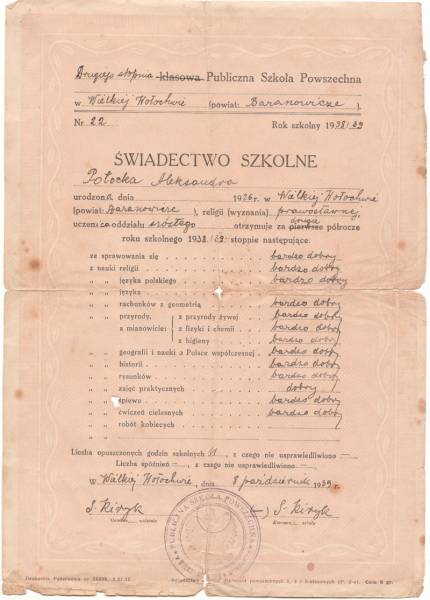 Drugiego stopnia klasowa Publiczna Szkoła Powszechna
w Wielkiej Hołochwie (powiat: Baranowicze ).
Nr 22 Rok szkolny 1938/39
ŚWIADECTWO SZKOLNE
Połocka Aleksandra
urodzona dnia 1926 r. w Wielkiej Hołochwie
(powiat: Baranowicze ), religii (wyznania) prawosławnej,
uczenica oddziału szóstego otrzymuje za pierwsze drugie półrocze
roku szkolnego 1938/39 stopnie następujące:
ze sprawowania się bardzo dobry
z nauki religii bardzo dobry
„ „ języka polskiego bardzo dobry
„ „ języka
„ „ rachunków z geometrią bardzo dobry
„ „ przyrody, z przyrody żywej bardzo dobry
a mianowicie: z fizyki i chemii bardzo dobry
z higieny bardzo dobry
„ „ geografii i nauki o Polsce współczesnej bardzo dobry
„ „ historii bardzo dobry
„ „ rysunków bardzo dobry
„ „ zajęć praktycznych dobry
„ „ śpiewu bardzo dobry
„ „ ćwiczeń cielesnych bardzo dobry
„ „ robót kobiecych
Liczba opuszczonych godzin szkolnych, z czego nie usprawiedliwiono —
Liczba spóźnień —, z czego nie usprawiedliwiono —
w Wielkiej Hołochwie, dnia 8 październik 1939 r.
S. Kiryk (—) S. Kiryk
PUBLICZNA SZKOŁA POWSZECHNA
Cena 6 gr.